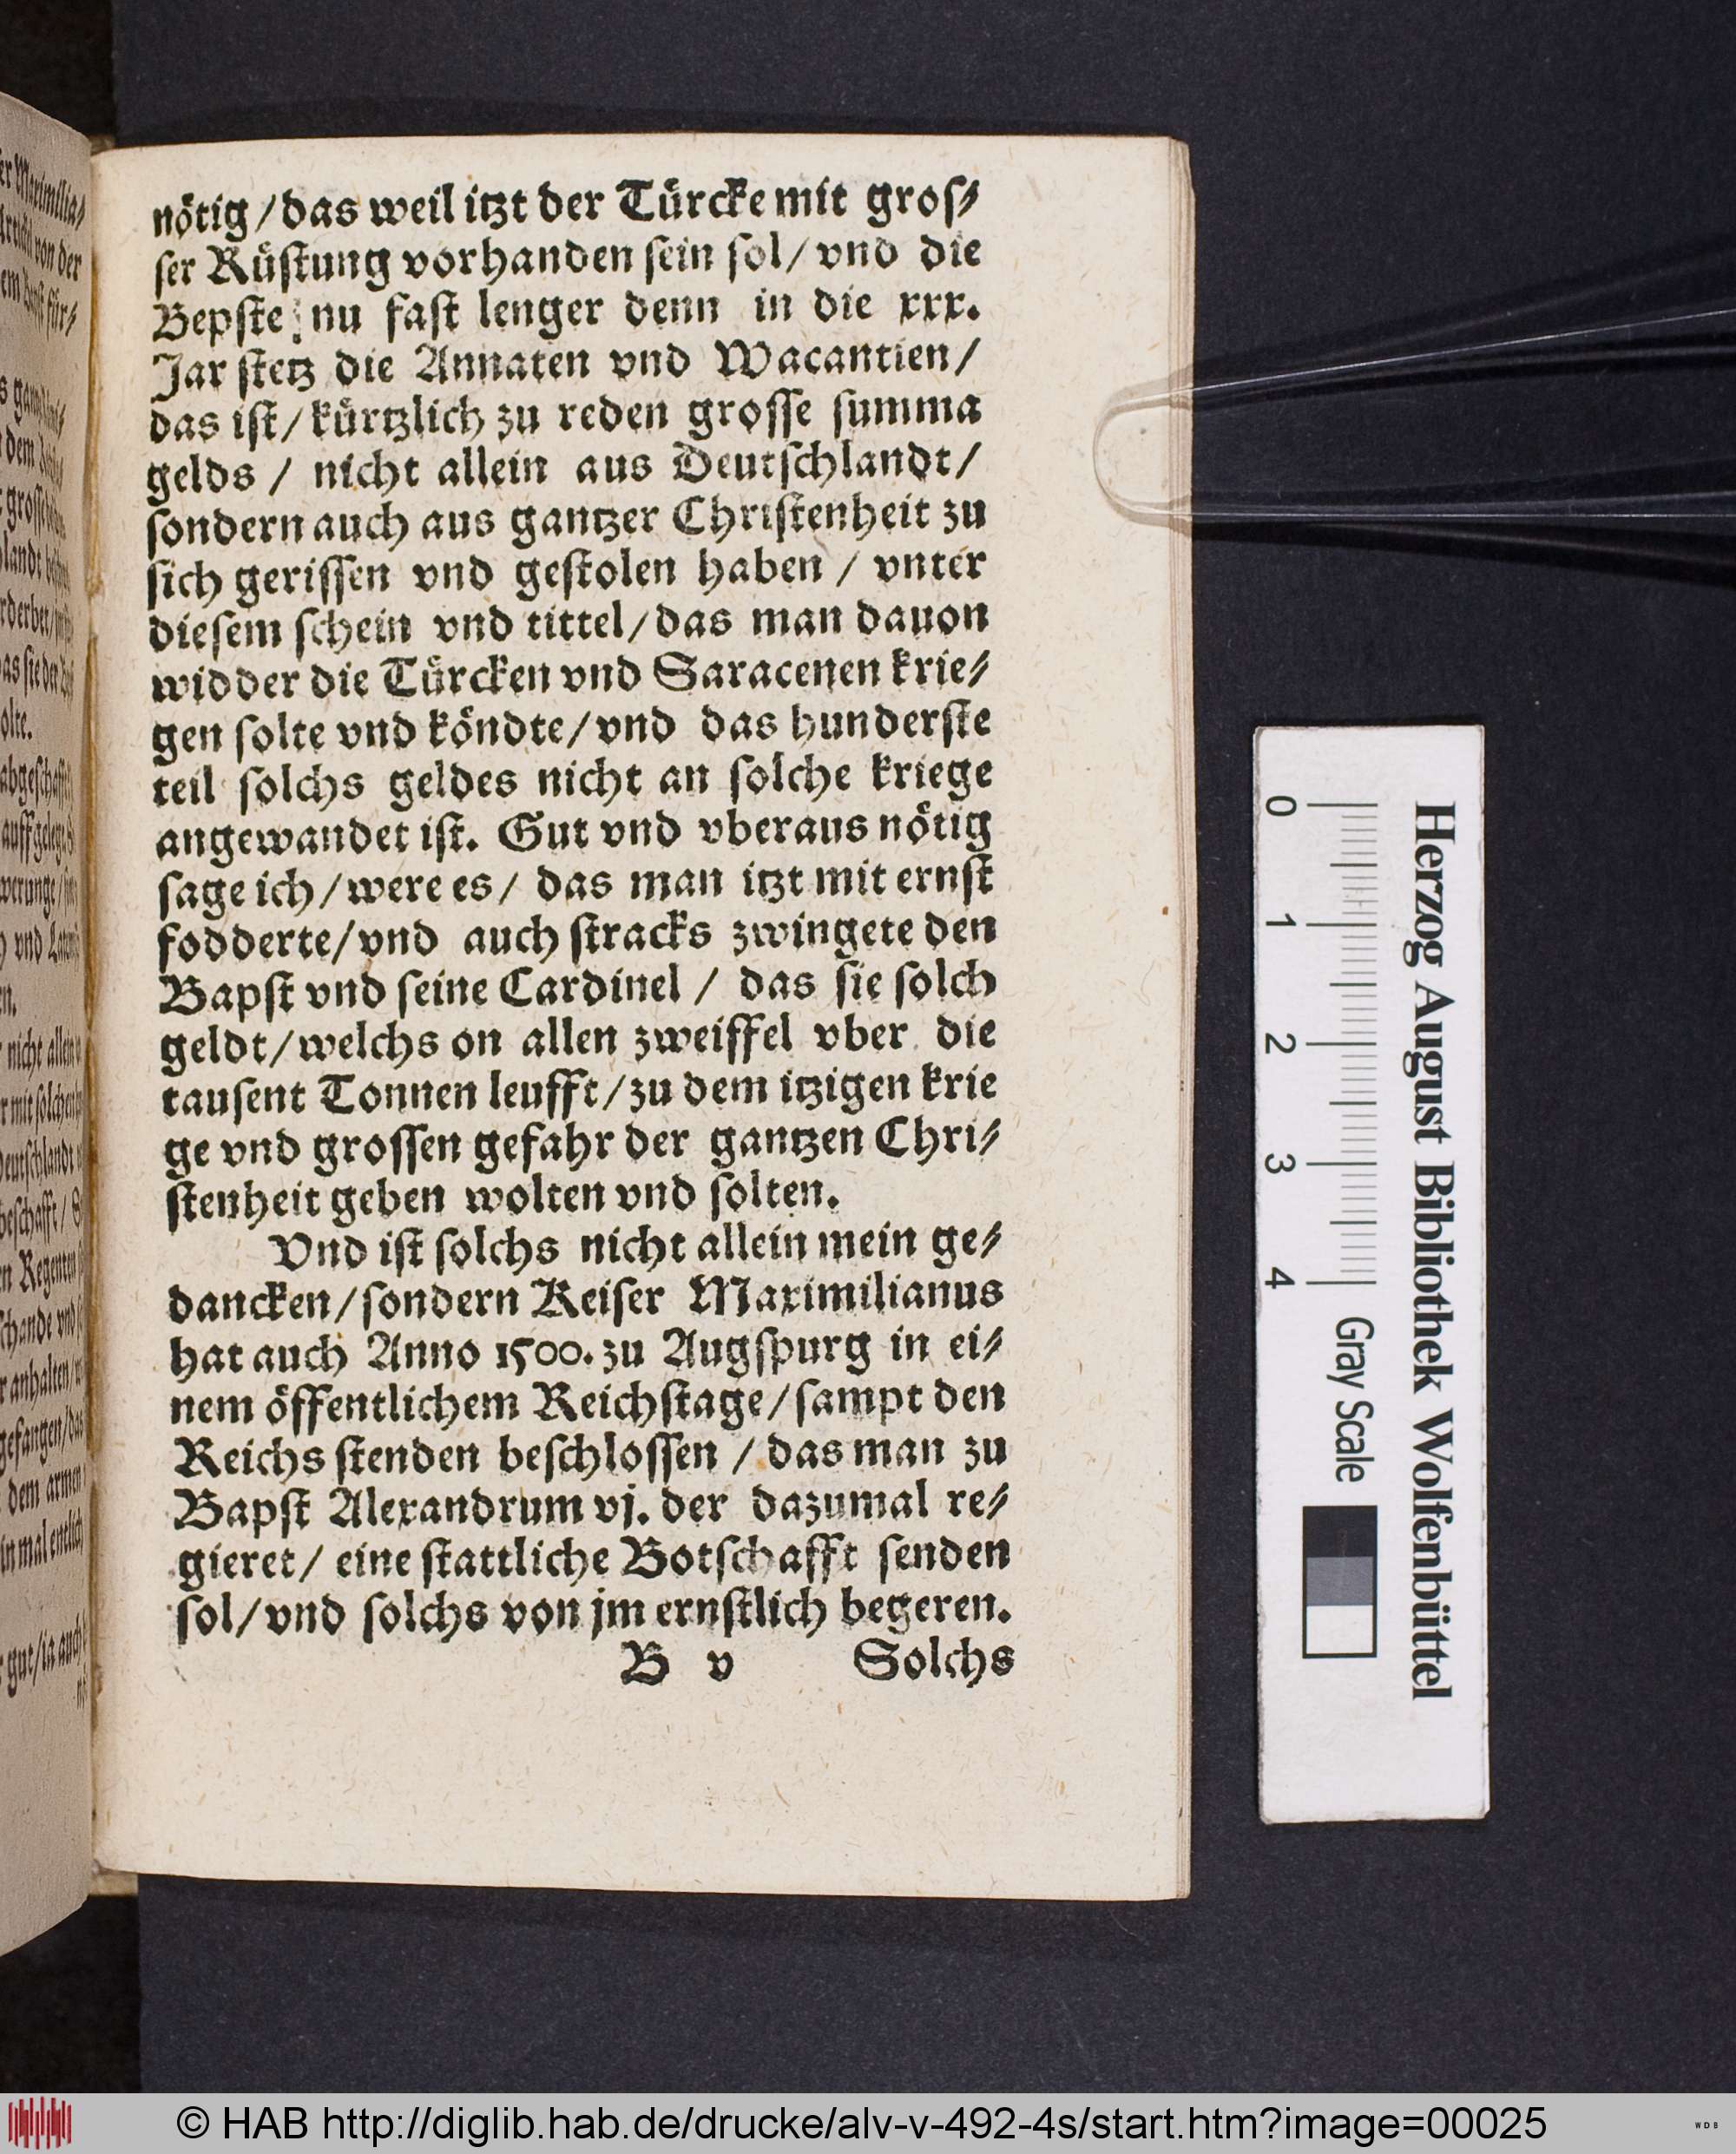 nötig / das weil itzt der Türcke mit groſ⸗
ſer Rüſtung vorhanden ſein ſol / vnd die
Bepſte nu faſt lenger denn in die xxx.
Jar ſtetz die Annaten vnd Wacantien /
das iſt / kürtzlich zu reden groſſe ſumma
gelds / nicht allein aus Deutſchlandt /
ſondern auch aus gantzer Chriſtenheit zu
ſich geriſſen vnd geſtolen haben / vnter
dieſem ſchein vnd tittel / das man dauon
widder die Türcken vnd Saracenen krie⸗
gen ſolte vnd köndte / vnd das hunderſte
teil ſolchs geldes nicht an ſolche kriege
angewandet iſt. Gut vnd vberaus nötig
ſage ich / were es / das man itzt mit ernſt
fodderte / vnd auch ſtracks zwingete den
Bapſt vnd ſeine Cardinel / das ſie ſolch
geldt / welchs on allen zweiffel vber die
tauſent Tonnen leufft / zu dem itzigen krie
ge vnd groſſen gefahr der gantzen Chri⸗
ſtenheit geben wolten vnd ſolten.
Vnd iſt ſolchs nicht allein mein ge⸗
dancken / ſondern Keiſer Maximilianus
hat auch Anno 1500. zu Augſpurg in ei⸗
nem öffentlichem Reichſtage / ſampt den
Reichs ſtenden beſchloſſen / das man zu
Bapſt Alexandrum vj. der dazumal re⸗
gieret / eine ſtattliche Botſchafft ſenden
ſol / vnd ſolchs von jm ernſtlich begeren.
B v Solchs
Herzog August Bibliothek Wolfenbüttel
0 1 2 3 4 Gray Scale
© HAB http://diglib.hab.de/drucke/alv-v-492-4s/start.htm?image=00025
WDB